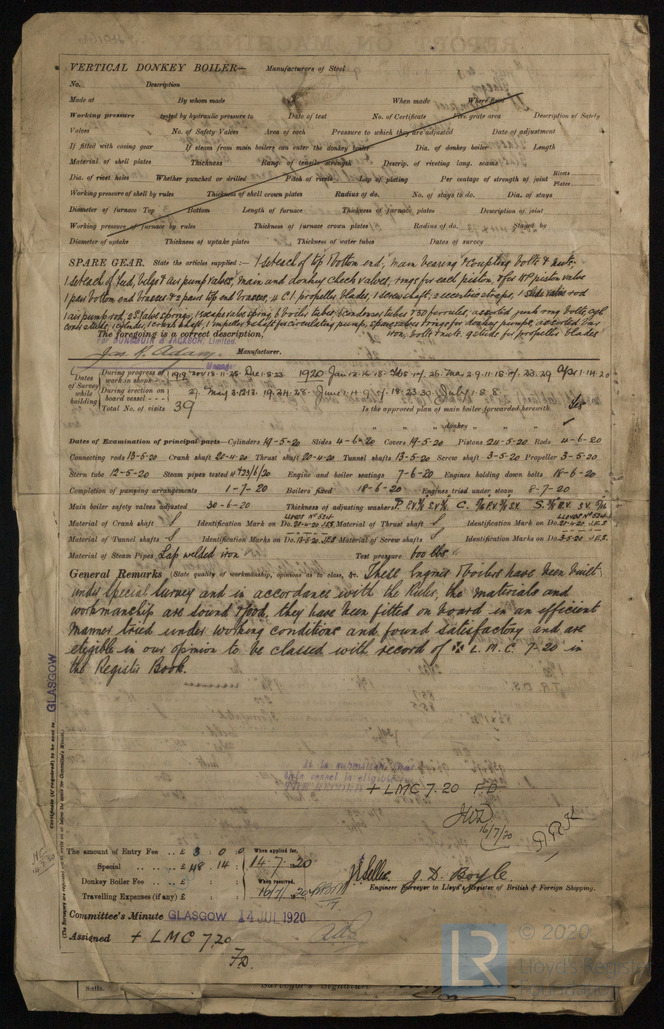 VERTICAL DONKEY BOILER— Manufacturers of Steel
No. Description
Made at By whom made When made Where fixed
Working pressure tested by hydraulic pressure to Date of test No. of Certificate Fire grate area Description of Safety
Valves No. of Safety Valves Area of each Pressure to which they are adjusted Date of adjustment
If fitted with easing gear If steam from main boilers can enter the donkey boiler Dia. of donkey boiler Length
Material of shell plates Thickness Range of tensile strength Descrip. of riveting long. seams
Dia. of rivet holes Whether punched or drilled Pitch of rivets Lap of plating Per centage of strength of joint Rivets Plates
Working pressure of shell by rules Thickness of shell crown plates Radius of do. No. of stays to do. Dia. of stays
Diameter of furnace Top Bottom Length of furnace Thickness of furnace plates Description of joint
Working pressure of furnace by rules Thickness of furnace crown plates Radius of do. Stayed by
Diameter of uptake Thickness of uptake plates Thickness of water tubes Dates of survey
SPARE GEAR. State the articles supplied:— 1 set each of top & bottom end, main bearing & coupling bolts & nuts.
1 set each of feed, bilge & air pump valves, main and donkey check valves, rings for each piston, & for HP piston valve
1 pair bottom end brasses & 2 pairs top end brasses, 4 C.I. propeller blades, 1 screw shaft, 2 eccentric straps, 1 slide valve rod
1 air pump rod, 2 S. valve springs, 1 escape valve spring, 6 boiler tubes, condenser tubes & 50 ferrules, assorted junk ring bolts
1 crank shaft, 1 impeller & shaft for circulating pump, spare valves & rings for donkey pumps, assorted bar
iron, bolts & nuts, & studs for propeller blades
The foregoing is a correct description,
For DUNSMUIR & JACKSON, Limited.
Jas. K. Adam, Manufacturer.
Manager
Dates of Survey while building
During progress of work in shops -- 1919 Nov 18.11.25 Dec 1.8.23 1920 Jan 12.16.18 Feb Mar 2.9.11.18 23.29 Apr 1.14.20
During erection on board vessel --- 27 May 3.12.13.19.24.28 June 1.4 18.23.30 July 1.8.8
Total No. of visits 39
Is the approved plan of main boiler forwarded herewith Yes
" " " donkey " " "
Dates of Examination of principal parts—Cylinders 19-5-20 Slides 4-6-20 Covers 19-5-20 Pistons 24-5-20 Rods 4-6-20
Connecting rods 13-5-20 Crank shaft 28-4-20 Thrust shaft 20-4-20 Tunnel shafts 13-5-20 Screw shaft 3-5-20 Propeller 3-5-20
Stern tube 12-5-20 Steam pipes tested 4 & 23/6/20 Engine and boiler seatings 7-6-20 Engines holding down bolts 18-6-20
Completion of pumping arrangements 1-7-20 Boilers fixed 18-6-20 Engines tried under steam 8-7-20
Main boiler safety valves adjusted 30-6-20 Thickness of adjusting washers
Material of Crank shaft S Identification Mark on Do. 28-4-20 J.E.S Material of Thrust shaft S Identification Mark on Do. 20-4-20 J.E.S.
Material of Tunnel shafts S Identification Marks on Do. 13-5-20 J.E.S Material of Screw shafts S Identification Marks on Do. 3-5-20 J.E.S.
Material of Steam Pipes Lap welded iron Test pressure 600 lbs
General Remarks (State quality of workmanship, opinions as to class, &c. These Engines & boilers have been built
under Special Survey and in accordance with the Rules, the materials and
workmanship are sound & good, they have been fitted on board in an efficient
manner tried under working conditions and found satisfactory and are
eligible in our opinion to be classed with record of ✠ L.M.C. 7-20 in
the Register Book.
GLASGOW
Certificate (if required) to be sent to
(The Surveyors are requested not to write on or below the space for Committee's Minute.)
It is submitted that
this vessel is eligible for
THE RECORD
+ LMC 7.20 F.D
16/7/20
The amount of Entry Fee .. £ 3 : 0 : 0 When applied for,
Special .. £ 48 : 14 : 14.7.20
Donkey Boiler Fee .. £ : : When received,
Travelling Expenses (if any) £ : : 16/7/ 20
J.E. Sellex J. D. Boyle
Engineer Surveyor to Lloyd's Register of British & Foreign Shipping.
Committee's Minute GLASGOW 14 JUL 1920
Assigned + LMC 7.20
F.D.
© 2020
LR Lloyd's Register
Foundation
Surveyor's Signature